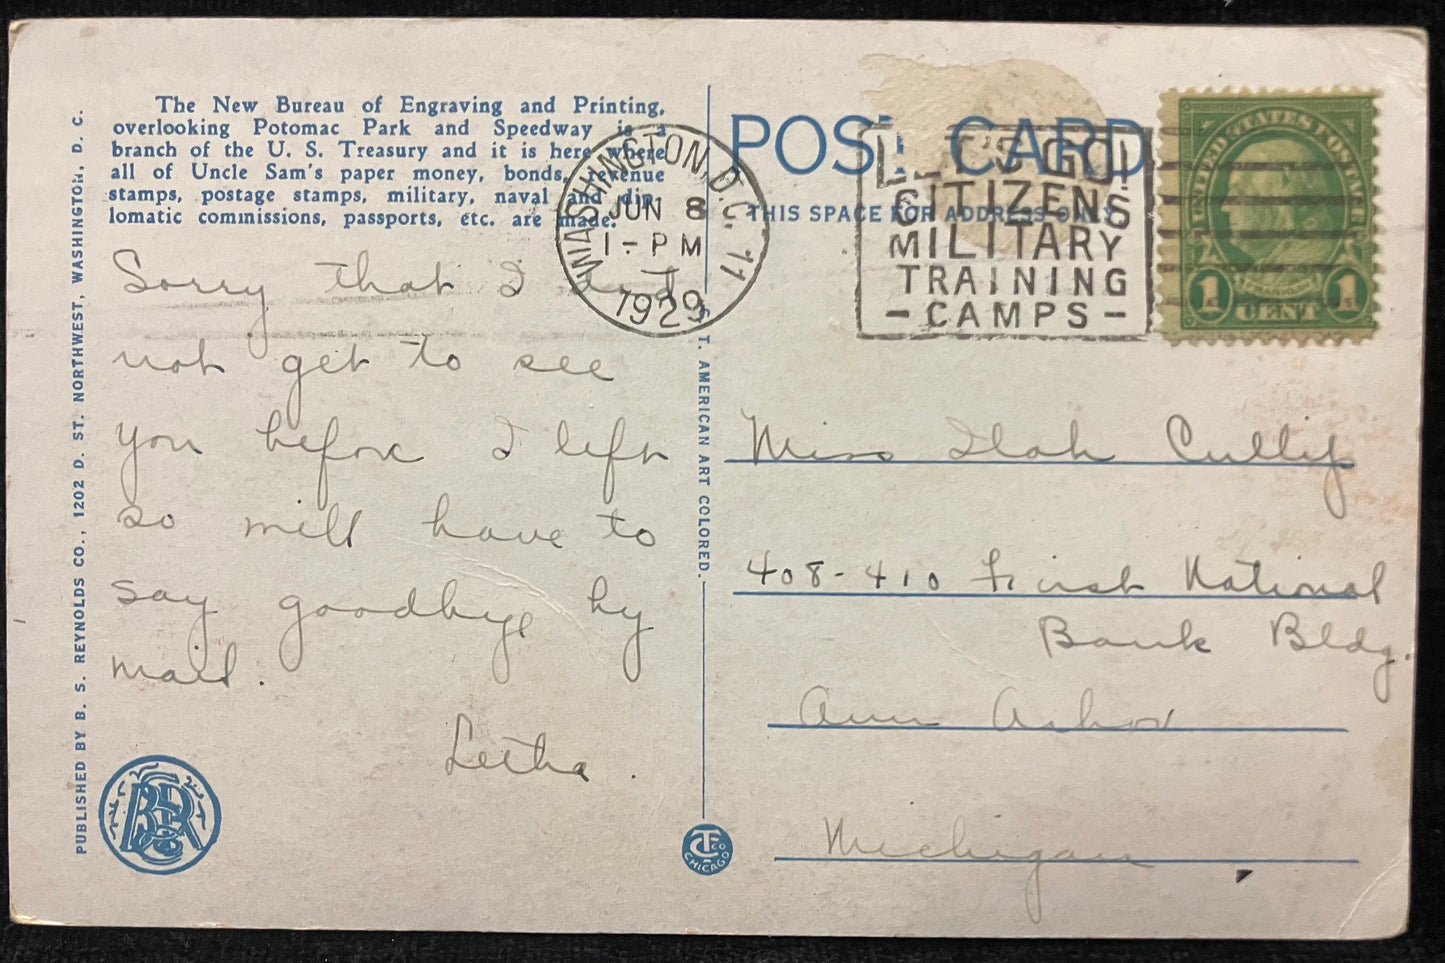 The New Bureau of Engraving and Printing,
overlooking Potomac Park and Speedway is a
branch of the U. S. Treasury and it is here where
all of Uncle Sam's paper money, bonds, revenue
stamps, postage stamps, military, naval and dip-
lomatic commissions, passports, etc. are made.
PUBLISHED BY B. S. REYNOLDS CO., 1202 D. ST. NORTHWEST, WASHINGTON, D. C.
Sorry that I did
not get to see
you before I left
so will have to
say goodbye by
mail.
Letha.
WASHINGTON, D.C. 11
JUN 8
1 - PM
1929
T. AMERICAN ART COLORED.
CHICAGO
POST CARD
THIS SPACE FOR ADDRESS ONLY
LET'S GO!
CITIZENS
MILITARY
TRAINING
- CAMPS -
UNITED STATES POSTAGE
FRANKLIN
1 CENT 1
Miss Ilah Cullip
408-410 First National
Bank Bldg.
Ann Arbor
Michigan